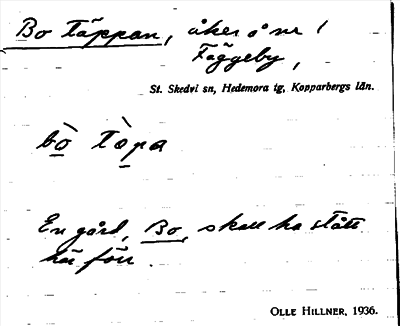 Bo täppan, åker å nr 1
Fäggeby,
St. Skedvi sn, Hedemora tg, Kopparbergs län.
bò tàpa
En gård, Bo, skall ha stått
här förr.
OLLE HILLNER, 1936.